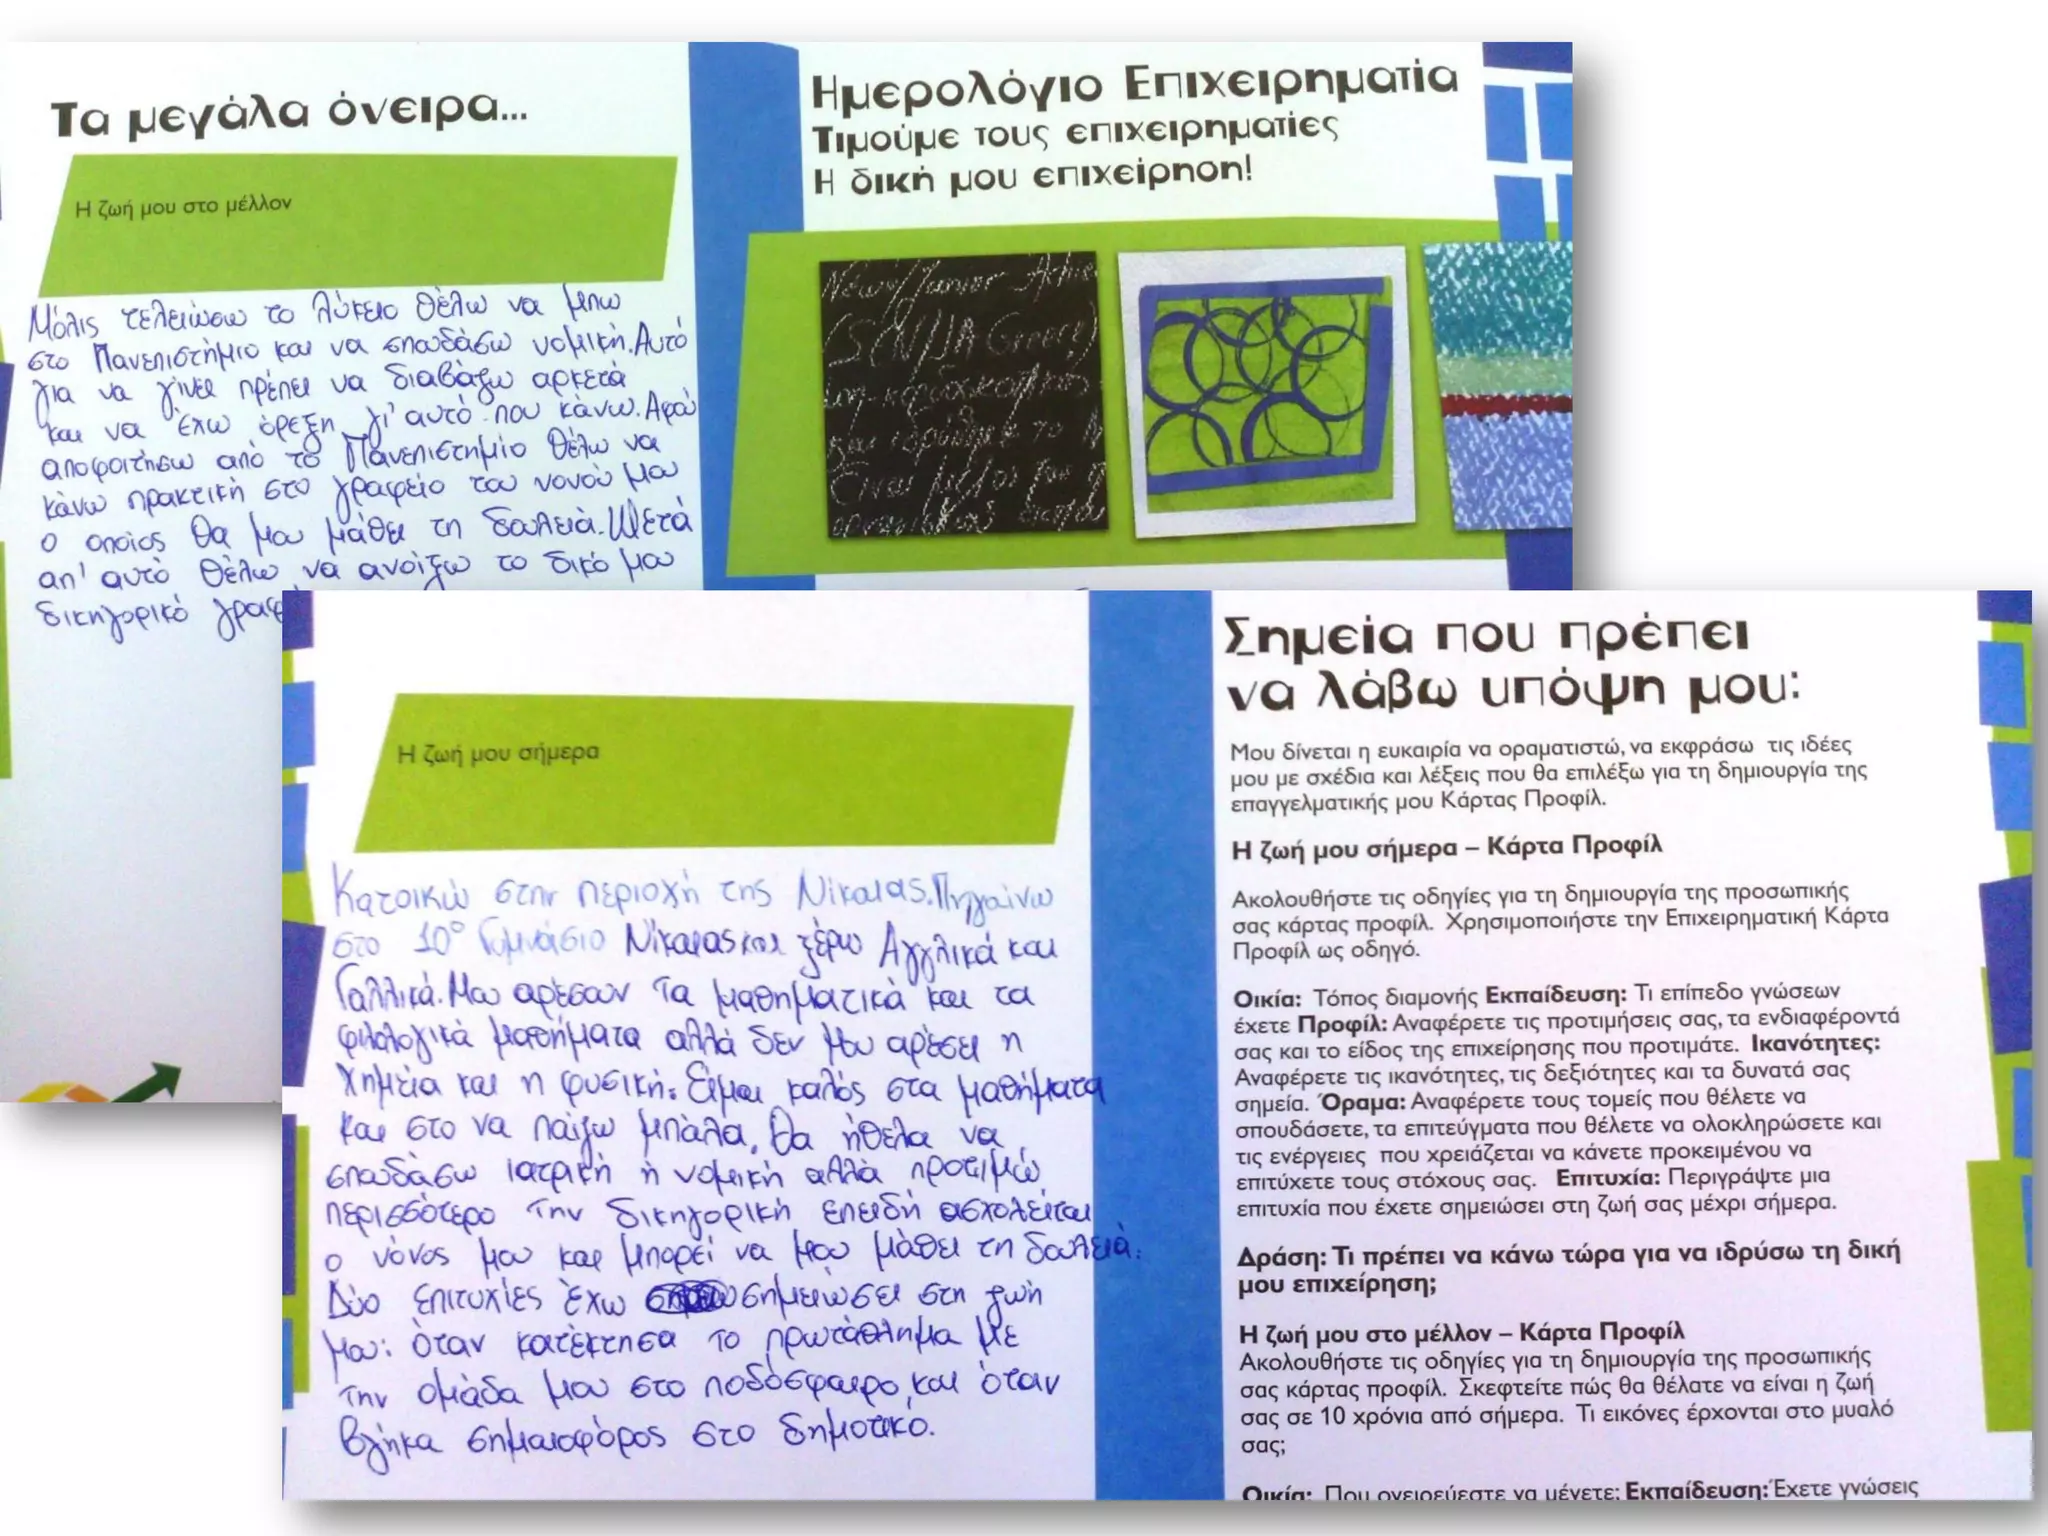 Τα μεγάλα όνειρα...
Η ζωή μου στο μέλλον
Μόλις τελειώσω το λύκειο θέλω να μπω
στο Πανεπιστήμιο και να σπουδάσω νομική. Αυτό
για να γίνει πρέπει να διαβάζω αρκετά
και να έχω όρεξη γι' αυτό που κάνω. Αφού
αποφοιτήσω από το Πανεπιστήμιο θέλω να
κάνω πρακτική στο γραφείο του νονού μου
ο οποίος θα μου μάθει τη δουλειά. Μετά
απ' αυτό θέλω να ανοίξω το δικό μου
δικηγορικό γραφ
Ημερολόγιο Επιχειρηματία
Τιμούμε τους επιχειρηματίες
Η δική μου επιχείρηση!
Junior Achie
(SEN/JA Greece)
μη-κερδοσκοπικός
και ιδρύθηκε το
Είναι μέλος του
Η ζωή μου σήμερα
Κατοικώ στην περιοχή της Νίκαιας. Πηγαίνω
στο 10ο Γυμνάσιο Νίκαιας και ξέρω Αγγλικά και
Γαλλικά. Μου αρέσουν τα μαθηματικά και τα
φιλολογικά μαθήματα αλλά δεν μου αρέσει η
Χημεία και η φυσική. Είμαι καλός στα μαθήματα
και στο να παίζω μπάλα. Θα ήθελα να
σπουδάσω ιατρική ή νομική αλλά προτιμώ
περισσότερο την δικηγορική επειδή ασχολείται
ο νόνος μου και μπορεί να μου μάθει τη δουλειά.
Δύο επιτυχίες έχω σημειώσει στη ζωή
μου: όταν κατέκτησα το πρωτάθλημα με
την ομάδα μου στο ποδόσφαιρο, και όταν
βγήκα σημαιοφόρος στο δημοτικό.
Σημεία που πρέπει
να λάβω υπόψη μου:
Μου δίνεται η ευκαιρία να οραματιστώ, να εκφράσω τις ιδέες
μου με σχέδια και λέξεις που θα επιλέξω για τη δημιουργία της
επαγγελματικής μου Κάρτας Προφίλ.
Η ζωή μου σήμερα – Κάρτα Προφίλ
Ακολουθήστε τις οδηγίες για τη δημιουργία της προσωπικής
σας κάρτας προφίλ. Χρησιμοποιήστε την Επιχειρηματική Κάρτα
Προφίλ ως οδηγό.
Οικία: Τόπος διαμονής Εκπαίδευση: Τι επίπεδο γνώσεων
έχετε Προφίλ: Αναφέρετε τις προτιμήσεις σας, τα ενδιαφέροντά
σας και το είδος της επιχείρησης που προτιμάτε. Ικανότητες:
Αναφέρετε τις ικανότητες, τις δεξιότητες και τα δυνατά σας
σημεία. Όραμα: Αναφέρετε τους τομείς που θέλετε να
σπουδάσετε, τα επιτεύγματα που θέλετε να ολοκληρώσετε και
τις ενέργειες που χρειάζεται να κάνετε προκειμένου να
επιτύχετε τους στόχους σας. Επιτυχία: Περιγράψτε μια
επιτυχία που έχετε σημειώσει στη ζωή σας μέχρι σήμερα.
Δράση: Τι πρέπει να κάνω τώρα για να ιδρύσω τη δική
μου επιχείρηση;
Η ζωή μου στο μέλλον – Κάρτα Προφίλ
Ακολουθήστε τις οδηγίες για τη δημιουργία της προσωπικής
σας κάρτας προφίλ. Σκεφτείτε πώς θα θέλατε να είναι η ζωή
σας σε 10 χρόνια από σήμερα. Τι εικόνες έρχονται στο μυαλό
σας;
Οικία: Που ονειρεύεστε να μένετε; Εκπαίδευση: Έχετε γνώσεις